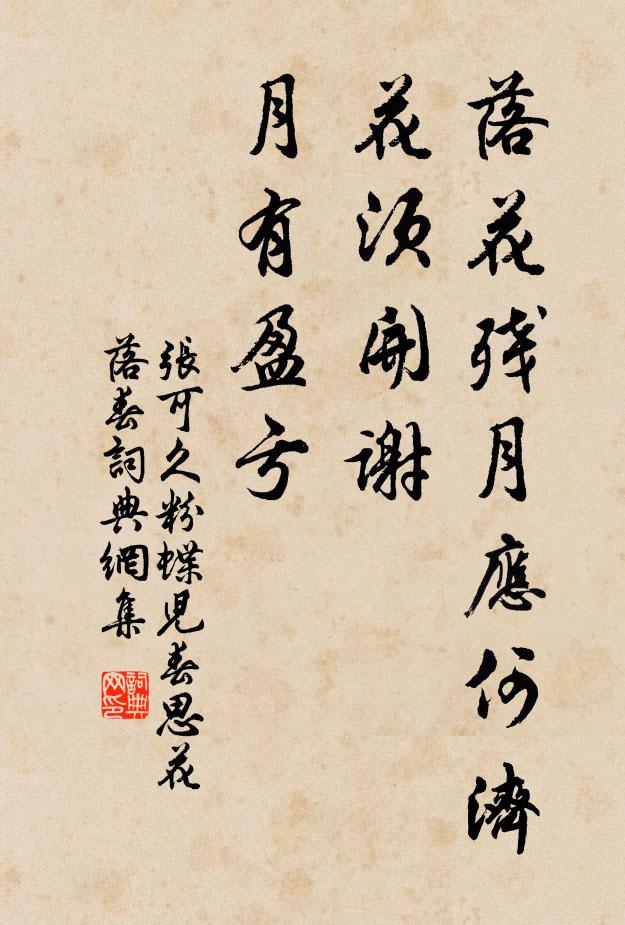 落花残月應何濟
花須開謝
月有盈亏
張可久粉蝶児春思花
落春詞典網集
詞典网印